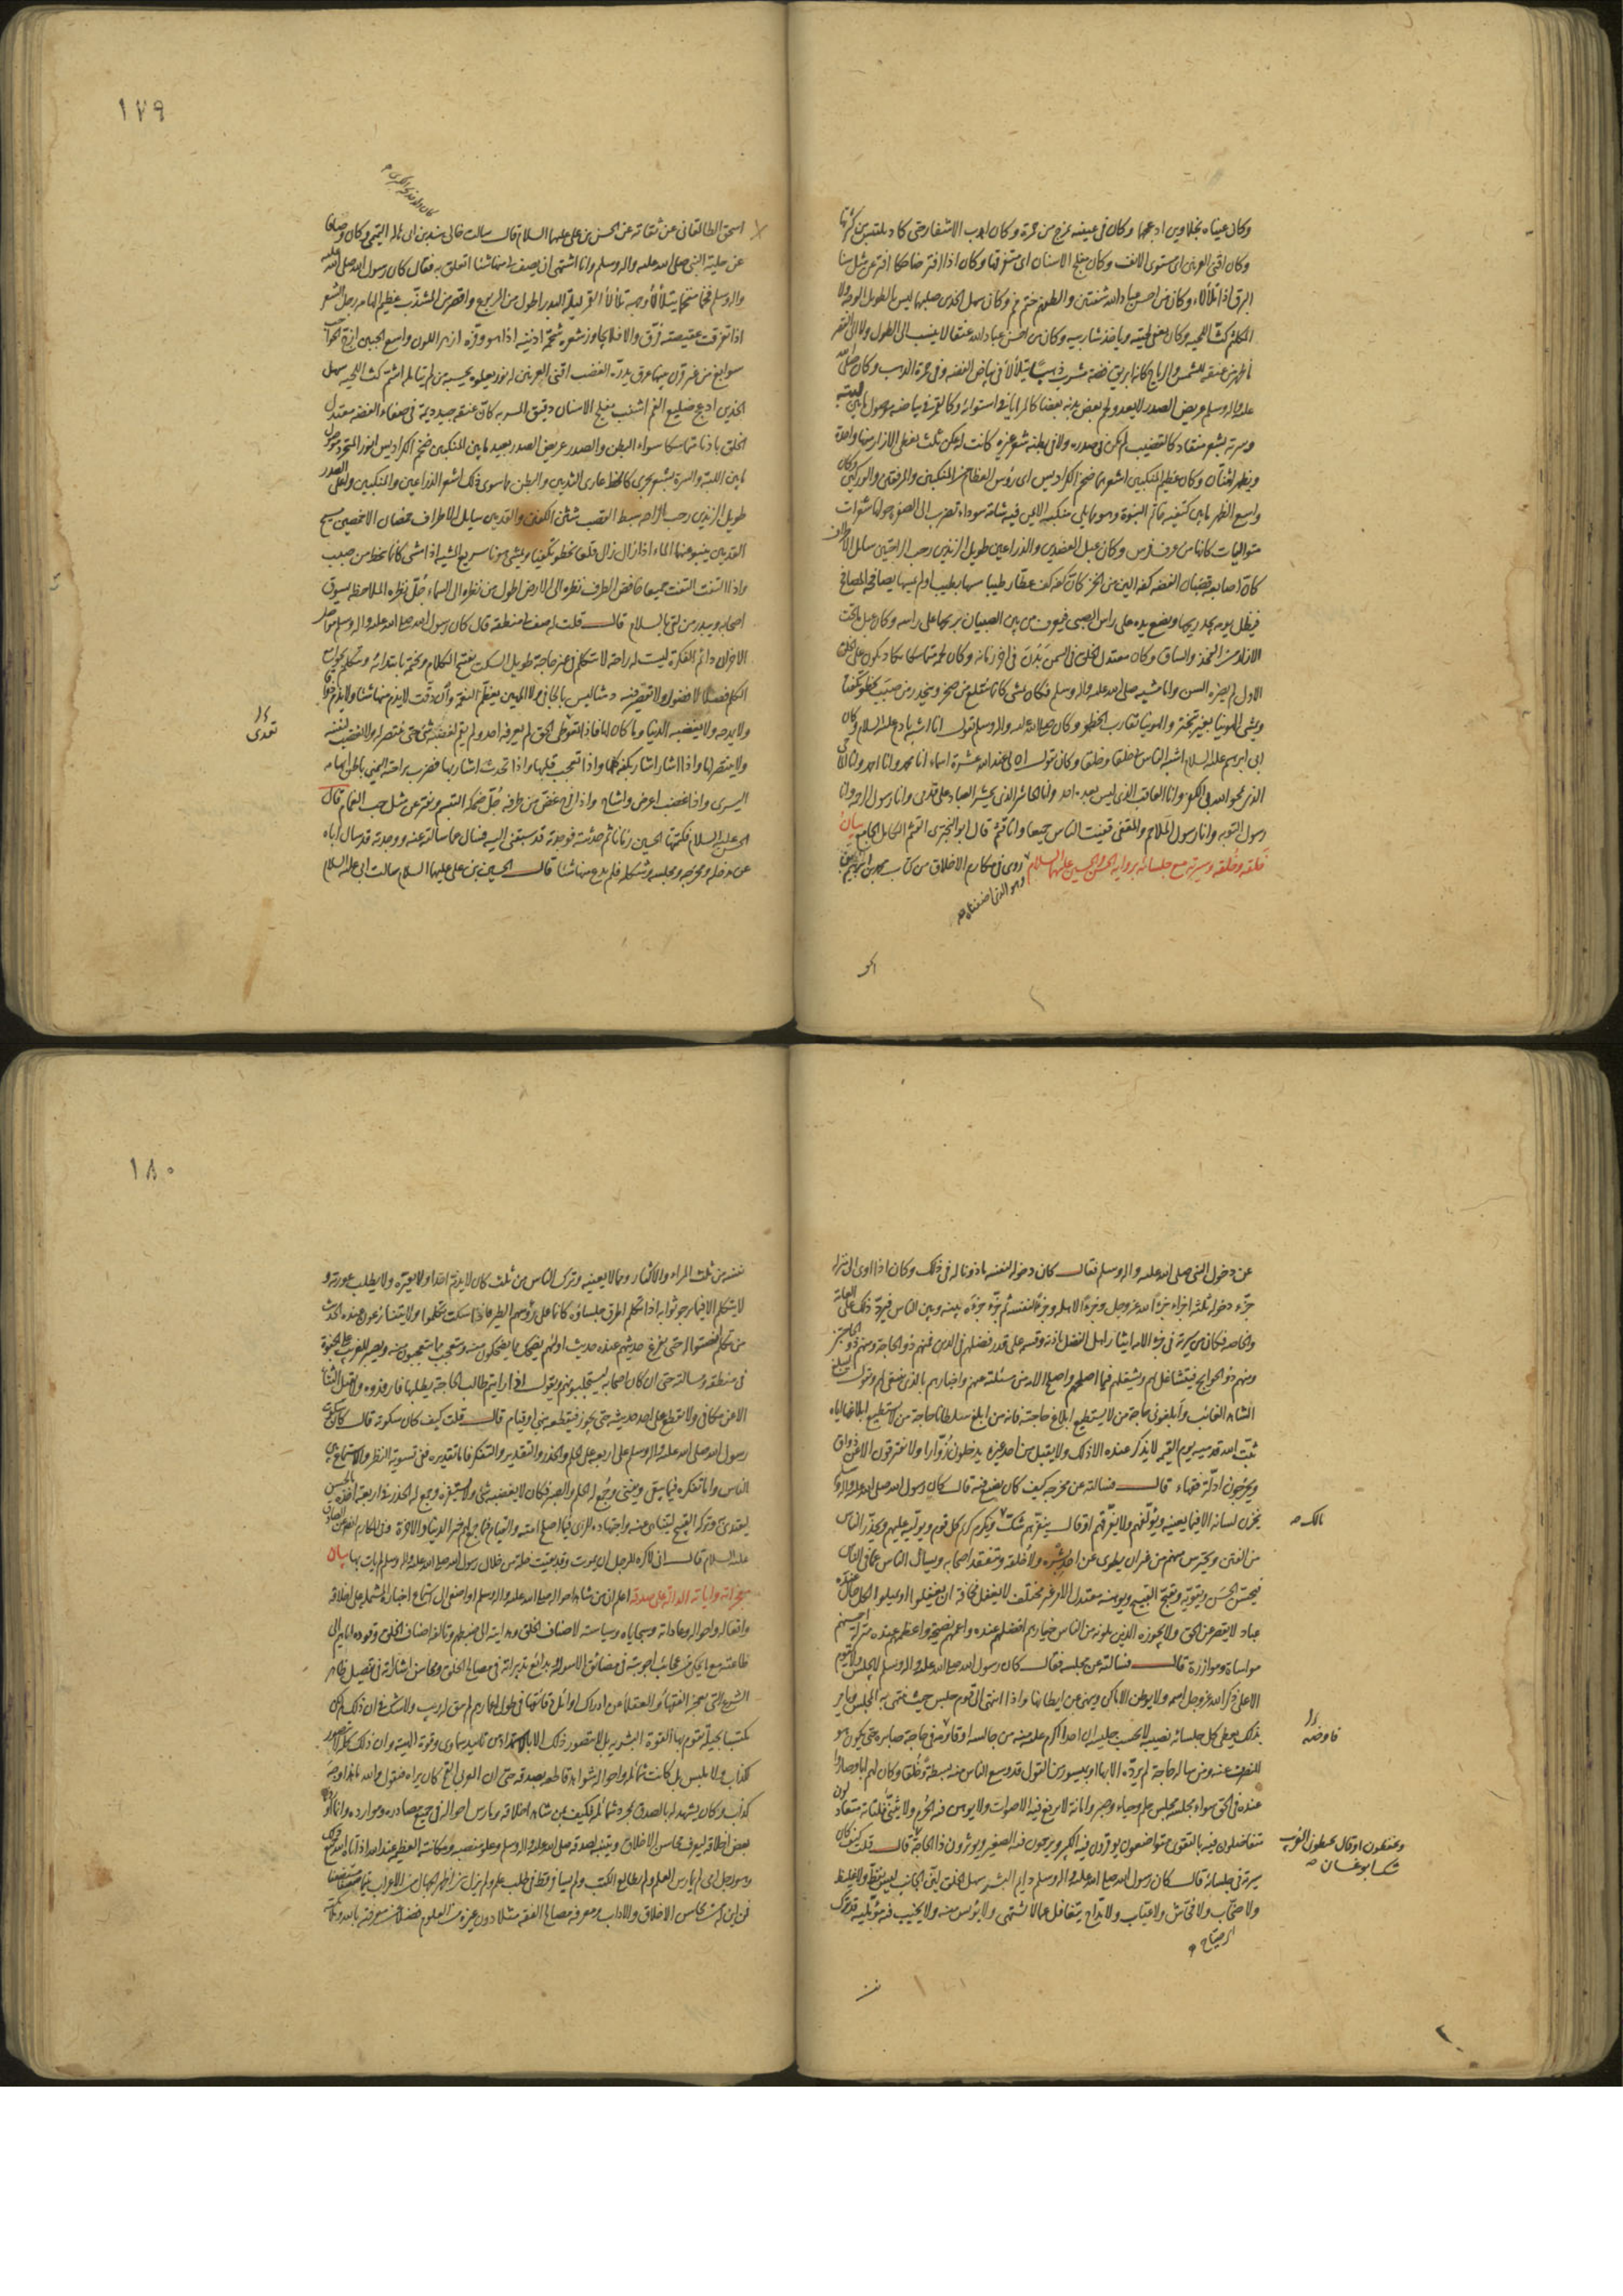 وكان عيناه نجلاوين ادعجهما وكان فى عينيه تمزج من حمرة وكان اهدب الاشفار حتى كاد يلتبس من كثرتها
وكان اقنى العرنين اى مستوى الانف وكان مفلج الاسنان اى متفرقها وكان اذا افتر ضاحكا افتر عن مثل سنا
البرق اذا تلألأ وكان من احسن عباد الله شفتين والطفهم ختم فم وكان سهل الخدين صلبهما ليس الطويل الوجه ولا
المكلثم كث اللحية وكان يعفى لحيته وياخذ شاربيه وكان من احسن عباد الله عنقا لا ينسب الى الطول ولا الى القصر
ما ظهر من عنقه للشمس والرياح كانه ابريق فضة مشرب ذهبا يتلألأ فى بياض الفضة وفى حمرة الذهب وكان صلى الله
عليه واله وسلم عريض الصدر لا يعدو لحم بعض بدنه بعضا كالمرايا فى استوائه وكالقمر فى بياضه موصول ما بين لبته
وسرته بشعر منقاد كالقضيب لم يكن فى صدره ولا فى بطنه شعر غيره كانت له عكن ثلث يغطى الازار منها واحدة
ويظهر اثنتان وكان عظيم المنكبين اشعرهما ضخم الكراديس اى رؤس العظام من المنكبين والمرفقين والوركين وكان
واسع الظهر ما بين كتفيه خاتم النبوة وهو مما يلى منكبه الايمن فيه شامة سوداء تضرب الى الصفرة حولها شعرات
متواليات كانها من عرف فرس وكان عبل العضدين والذراعين طويل الزندين رحب الراحتين سائل الاطراف
كان اصابعه قضبان الفضة كفه الين من الخز كان كفه كف عطار طيبا مسها بطيب او لم يمسها يصافحه المصافح
فيظل يومه يجد ريحها ويضع يده على راس الصبى فيعرف من بين الصبيان بريحها على راسه وكان عبل ما تحت
الازار من الفخذ والساق وكان معتدل الخلق فى السمن بدن فى اخر زمانه وكان لحمه متماسكا كاد يكون على الخلق
الاول لم يضره السن واما مشيه صلى الله عليه واله وسلم فكان يمشى كانما يتقلع من صخر وينحدر من صبب يخطو تكفئا
ويمشى الهوينا بغير تبختر والهوينا تقارب الخطو وكان صلى الله عليه واله وسلم يقول انا اشبه بادم عليه السلام وكان
ابى ابرهيم عليه السلام اشبه الناس بى خلقا وخلقا وكان يقول ان لى عند الله عشرة اسماء انا محمد وانا احمد وانا الماحى
الذى يمحو الله بى الكفر وانا العاقب الذى ليس بعده احد وانا الحاشر الذى يحشر العباد على قدمى وانا رسول الرحمة وانا
رسول التوبة وانا رسول الملاحم والمقفى قفيت الناس جميعا وانا قثم قال ابو البخترى القثم الكامل الجامع بيان
خلقه وخلقه وسيرته مع جلسائه برواية الحسن والحسين عليهما السلام روى فى مكارم الاخلاق من كتاب محمد بن ابرهيم بن
١٧٩
اسحق الطالقانى عن ثقاته عن الحسن بن على عليهما السلام قال سالت خالى هند بن ابى هالة التميمى وكان وصافا
عن حلية النبى صلى الله عليه واله وسلم وانا اشتهى ان يصف لى منها شيئا اتعلق به فقال كان رسول الله صلى الله عليه
واله وسلم فخما مفخما يتلألأ وجهه تلألأ القمر ليلة البدر اطول من المربوع واقصر من المشذب عظيم الهامة رجل الشعر
اذا تفرقت عقيصته فرق والا فلا يجاوز شعره شحمة اذنيه اذا هو وفره ازهر اللون واسع الجبين ازج الحواجب
سوابغ من غير قرن بينهما عرق يدره الغضب اقنى العرنين له نور يعلوه يحسبه من لم يتامله اشم كث اللحية سهل
الخدين ادعج ضليع الفم اشنب مفلج الاسنان دقيق المسربة كان عنقه جيد دمية فى صفاء الفضة معتدل
الخلق بادنا متماسكا سواء البطن والصدر عريض الصدر بعيد ما بين المنكبين ضخم الكراديس انور المتجرد موصول
ما بين اللبة والسرة بشعر يجرى كالخط عارى الثديين والبطن مما سوى ذلك اشعر الذراعين والمنكبين واعلى الصدر
طويل الزندين رحب الراحة سبط القصب شثن الكفين والقدمين سايل الاطراف خمصان الاخمصين مسيح
القدمين ينبو عنهما الماء اذا زال زال قلعا يخطو تكفئا ويمشى هونا سريع المشية اذا مشى كانما ينحط من صبب
واذا التفت التفت جميعا خافض الطرف نظره الى الارض اطول من نظره الى السماء جل نظره الملاحظة يسوق
اصحابه ويبدر من لقى بالسلام قال قلت له صف لى منطقه قال كان رسول الله صلى الله عليه واله وسلم متواصل
الاحزان دائم الفكرة ليست له راحة لا يتكلم فى غير حاجة طويل السكت يفتتح الكلام ويختمه بابتدائه ويتكلم بجوامع
الكلم فصلا لا فضول ولا تقصير فيه دمثا ليس بالجافى ولا المهين يعظم النعمة وان دقت لا يذم منها شيئا ولا يذم ذواقا
ولا يمدحه ولا يغضبه الدنيا وما كان لها فاذا تعوطى الحق لم يعرفه احد ولم يقم لغضبه شئ حتى ينتصر له ولا يغضب لنفسه
ولا ينتصر لها واذا اشار اشار بكفه كلها واذا تعجب قلبها واذا تحدث اشار بها فضرب براحته اليمنى باطن ابهامه
اليسرى واذا غضب اعرض واشاح واذا فرح غض من طرفه جل ضحكه التبسم ويفتر عن مثل حب الغمام قال
الحسن عليه السلام فكتمتها الحسين زمانا ثم حدثته فوجدته قد سبقنى اليه فسال عما سالته عنه ووجدته قد سال اباه
عن مدخله ومخرجه ومجلسه وشكله فلم يدع منها شيئا قال الحسين بن على عليهما السلام سالت ابى عليه السلام
تعدى
عن دخول النبى صلى الله عليه واله وسلم فقال كان دخوله لنفسه ماذونا له فى ذلك وكان اذا اوى الى منزله
جزء دخوله ثلثة اجزاء جزءا لله عز وجل وجزءا لاهله وجزءا لنفسه ثم جزء جزءه بينه وبين الناس فيرد ذلك على العامة
ومنهم ذو الحوايج فيتشاغل بهم ويشغلهم فيما اصلحهم واصلح الامة من مسئلته عنهم واخبارهم بالذى ينبغى لهم ويقول ليبلغ
الشاهد الغائب وابلغونى حاجة من لا يستطيع ابلاغ حاجته فانه من ابلغ سلطانا حاجة من لا يستطيع ابلاغها اياه
ثبت الله قدميه يوم القيمة لا يذكر عنده الا ذلك ولا يقبل من احد غيره يدخلون زوارا ولا يفترقون الا عن ذواق
ويخرجون ادلة فقهاء قال فسالته عن مخرجه كيف كان يصنع فيه قال كان رسول الله صلى الله عليه واله وسلم
يخزن لسانه الا فيما يعنيه ويؤلفهم ولا يفرقهم او قال ينفرهم شك ويكرم كريم كل قوم ويوليه عليهم ويحذر الناس
من الفتن ويحترس منهم من غير ان يطوى عن احد بشره ولا خلقه ويتفقد اصحابه ويسال الناس عما فى الناس
فيحسن الحسن ويقويه ويقبح القبيح ويوهنه معتدل الامر غير مختلف لا يغفل مخافة ان يغفلوا او يميلوا لكل حال عنده
عباد لا يقصر عن الحق ولا يجوزه الذين يلونه من الناس خيارهم افضلهم عنده واعمهم نصيحة واعظمهم عنده منزلة احسنهم
مواساة وموازرة قال فسالته عن مجلسه فقال كان رسول الله صلى الله عليه واله وسلم لا يجلس ولا يقوم
الا على ذكر الله عز وجل اسمه ولا يوطن الاماكن وينهى عن ايطانها واذا انتهى الى قوم جلس حيث ينتهى به المجلس ويامر
بذلك يعطى كل جلسائه نصيبه لا يحسب جليسه ان احدا اكرم عليه منه من جالسه او قاومه فى حاجة صابره حتى يكون هو
المنصرف عنه ومن ساله حاجة لم يرده الا بها او بميسور من القول قد وسع الناس منه بسطه وخلقه وكان لهم ابا وصاروا
عنده فى الحق سواء مجلسه مجلس حلم وحياء وصبر وامانة لا يرفع فيه الاصوات ولا يوهن فيه الحرم ولا يثنى فلتاته متعادلون
متفاضلون فيه بالتقوى متواضعون يوقرون فيه الكبير ويرحمون فيه الصغير ويوثرون ذا الحاجة قال قلت كيف كان
سيرته فى جلسائه قال كان رسول الله صلى الله عليه واله وسلم دايم البشر سهل الخلق لين الجانب ليس بفظ ولا غليظ
ولا صخاب ولا فحاش ولا عياب ولا مداح يتغافل عما لا يشتهى ولا يؤيس منه ولا يخيب فيه مؤمليه قد ترك
فاوضه
ويحفظون او قال يحيطون الغريب
شك ابو غسان
١٨٠
نفسه من ثلث المراء والاكثار ومما لا يعنيه وترك الناس من ثلث كان لا يذم احدا ولا يعيره ولا يطلب عورته و
لا يتكلم الا فيما يرجو ثوابه اذا تكلم اطرق جلساؤه كانما على رؤسهم الطير فاذا سكت تكلموا ولا يتنازعون عنده الحديث
من تكلم انصتوا له حتى يفرغ حديثهم عنده حديث اولهم يضحك مما يضحكون منه ويتعجب مما يتعجبون منه ويصبر للغريب على الجفوة
فى منطقه ومسالته حتى ان كان اصحابه ليستجلبونهم ويقول اذا رايتم طالب الحاجة يطلبها فارفدوه ولا يقبل الثناء
الا من مكافى ولا يقطع على احد حديثه حتى يجوز فيقطعه بنهى او قيام قال قلت كيف كان سكوته قال كان سكوت
رسول الله صلى الله عليه واله وسلم على اربعة على الحلم والحذر والتقدير والتفكر فاما تقديره ففى تسوية النظر والاستماع بين
الناس واما تفكره فيما يبقى ويفنى وجمع له الحلم والصبر فكان لا يغضبه شئ ولا يستفزه وجمع له الحذر فى اربعة اخذه بالحسن
ليقتدى به وتركه القبيح ليتناهى عنه واجتهاده الراى فيما اصلح امته والقيام فيما جمع لهم خير الدنيا والاخرة وفى المكارم ايضا عن الصادق
عليه السلام قال انى لاكره للرجل ان يموت وقد بقيت خلة من خلال رسول الله صلى الله عليه واله وسلم لم يات بها بيان
معجزاته واياته الدالة على صدقه اعلم ان من شاهد احواله صلى الله عليه واله وسلم او اصغى الى استماع اخباره المشتملة على اخلاقه
وافعاله واحواله وعاداته وسجاياه وسياسته لاصناف الخلق وهدايته الى ضبطهم وتالفه اصناف الخلق وقوده اياهم الى
طاعته مع ما يحكى من عجائب اجوبته فى مضائق الاسولة وبدائع تدبيراته فى مصالح الخلق ومحاسن اشاراته فى تفصيل ظاهر
الشرع التى يعجز الفقهاء والعقلاء عن ادراك اوائل دقائقها فى طول اعمارهم لم يبق له ريب ولا شك فى ان ذلك لم يكن
مكتسبا بحيلة تقوم بها القوة البشرية بل لا يتصور ذلك الا بالاستمداد من تاييد سماوى وقوة الهية وان ذلك كله لا يتصور
لكذاب ولا ملبس بل كانت شمائله واحواله شواهد قاطعة بصدقه حتى ان العربى القح كان يراه فيقول والله ما هذا وجه
كذاب وكان يشهد له بالصدق بمجرد شمائله فكيف بمن شاهد اخلاقه ومارس احواله فى جميع مصادره وموارده وانما اوردنا
بعض اخلاقه ليعرف محاسن الاخلاق ويتنبه لصدقه صلى الله عليه واله وسلم وعلو منصبه ومكانته العظيمة عند الله اذ اتاه الله جميع ذلك
وهو رجل امى لم يمارس العلم ولم يطالع الكتب ولم يسافر قط فى طلب علم ولم يزل بين اظهر الجهال من الاعراب يتيما مستضعفا
فمن اين له محاسن الاخلاق والاداب ومعرفة مصالح الفقه مثلا دون غيره من العلوم فضلا عن معرفته بالله وملائكته